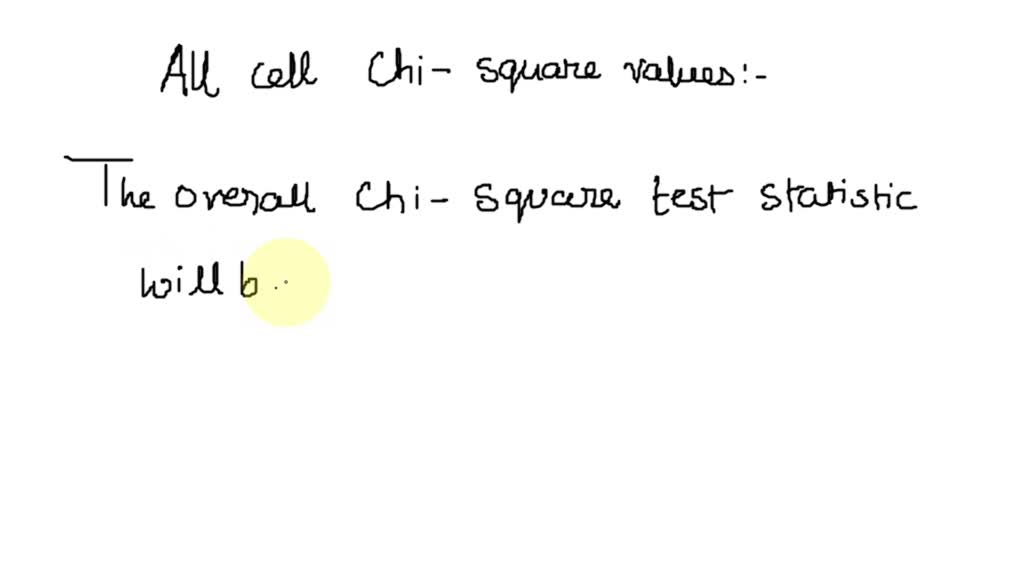 All cell Chi- square values:-
The overall Chi- square test statistic
will b